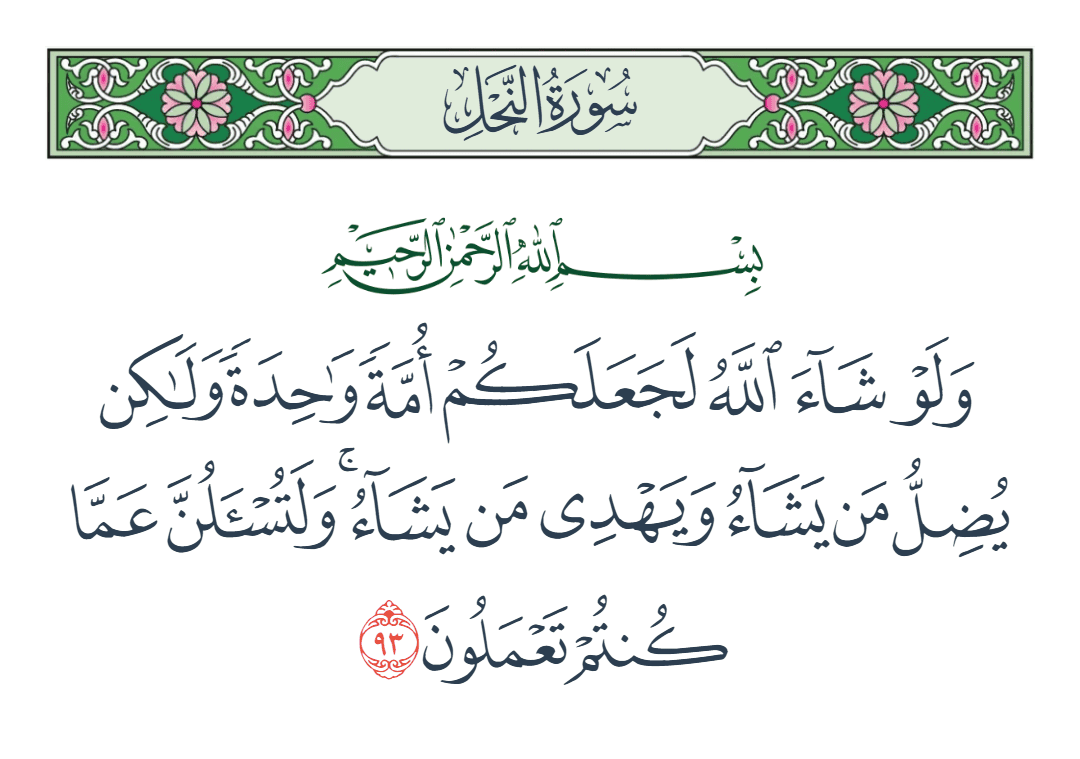 سُورَةُ النَّحْلِ
بِسْمِ ٱللَّهِ ٱلرَّحْمَٰنِ ٱلرَّحِيمِ
وَلَوْ شَآءَ ٱللَّهُ لَجَعَلَكُمْ أُمَّةً وَٰحِدَةً وَلَٰكِن
يُضِلُّ مَن يَشَآءُ وَيَهْدِى مَن يَشَآءُ ۚ وَلَتُسْـَٔلُنَّ عَمَّا
كُنتُمْ تَعْمَلُونَ ٩٣